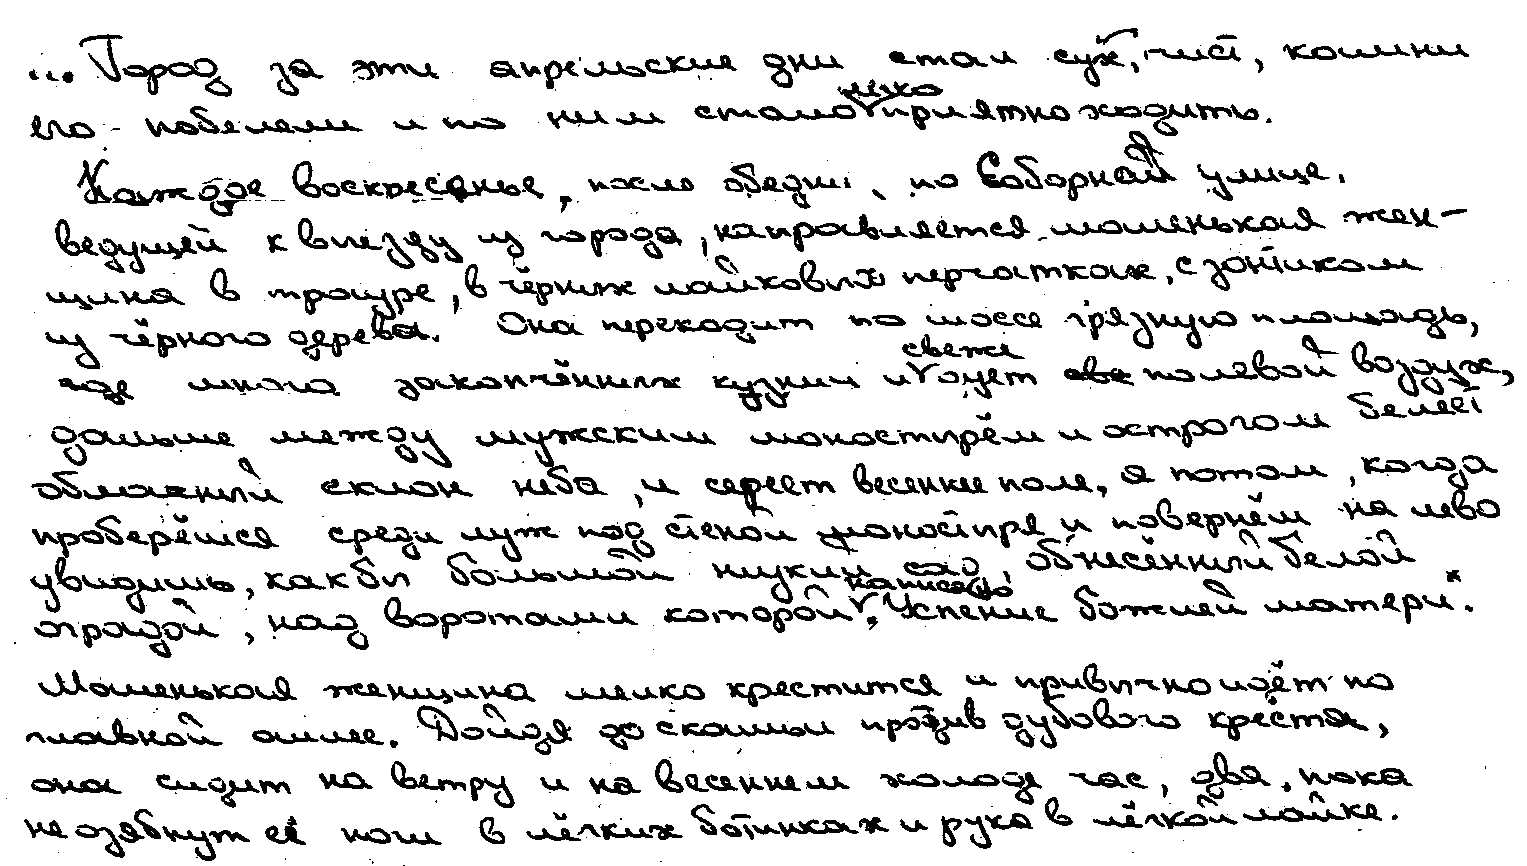 ... Город за эти апрельские дни стал сух, чист, камни
его побелели и по ним стало легко приятно ходить.
Каждое воскресенье, после обедни, по Соборной улице,
ведущей к выезду из города, направляется маленькая жен-
щина в трауре, в чёрных лайковых перчатках, с зонтиком
из чёрного дерева. Она переходит по шоссе грязную площадь,
где много закопчённых кузниц и свежо дует полевой воздух,
дальше между мужским монастырём и острогом белеет
облачный склон неба, и сереет весеннее поле, а потом, когда
проберёшся среди луж под стеной монастыря и повернём на лево
увидишь, как бы большой низкий сад, обнесённый белой
оградой, над воротами которой написано "Успение божией матери".
Маленькая женщина мелко крестится и привычно идёт по
главной аллее. Дойдя до скамьи против дубового креста,
она сидит на ветру и на весеннем холоде час, два, пока
не озябнут её ноги в лёгких ботинках и рука в лёгкой лайке.